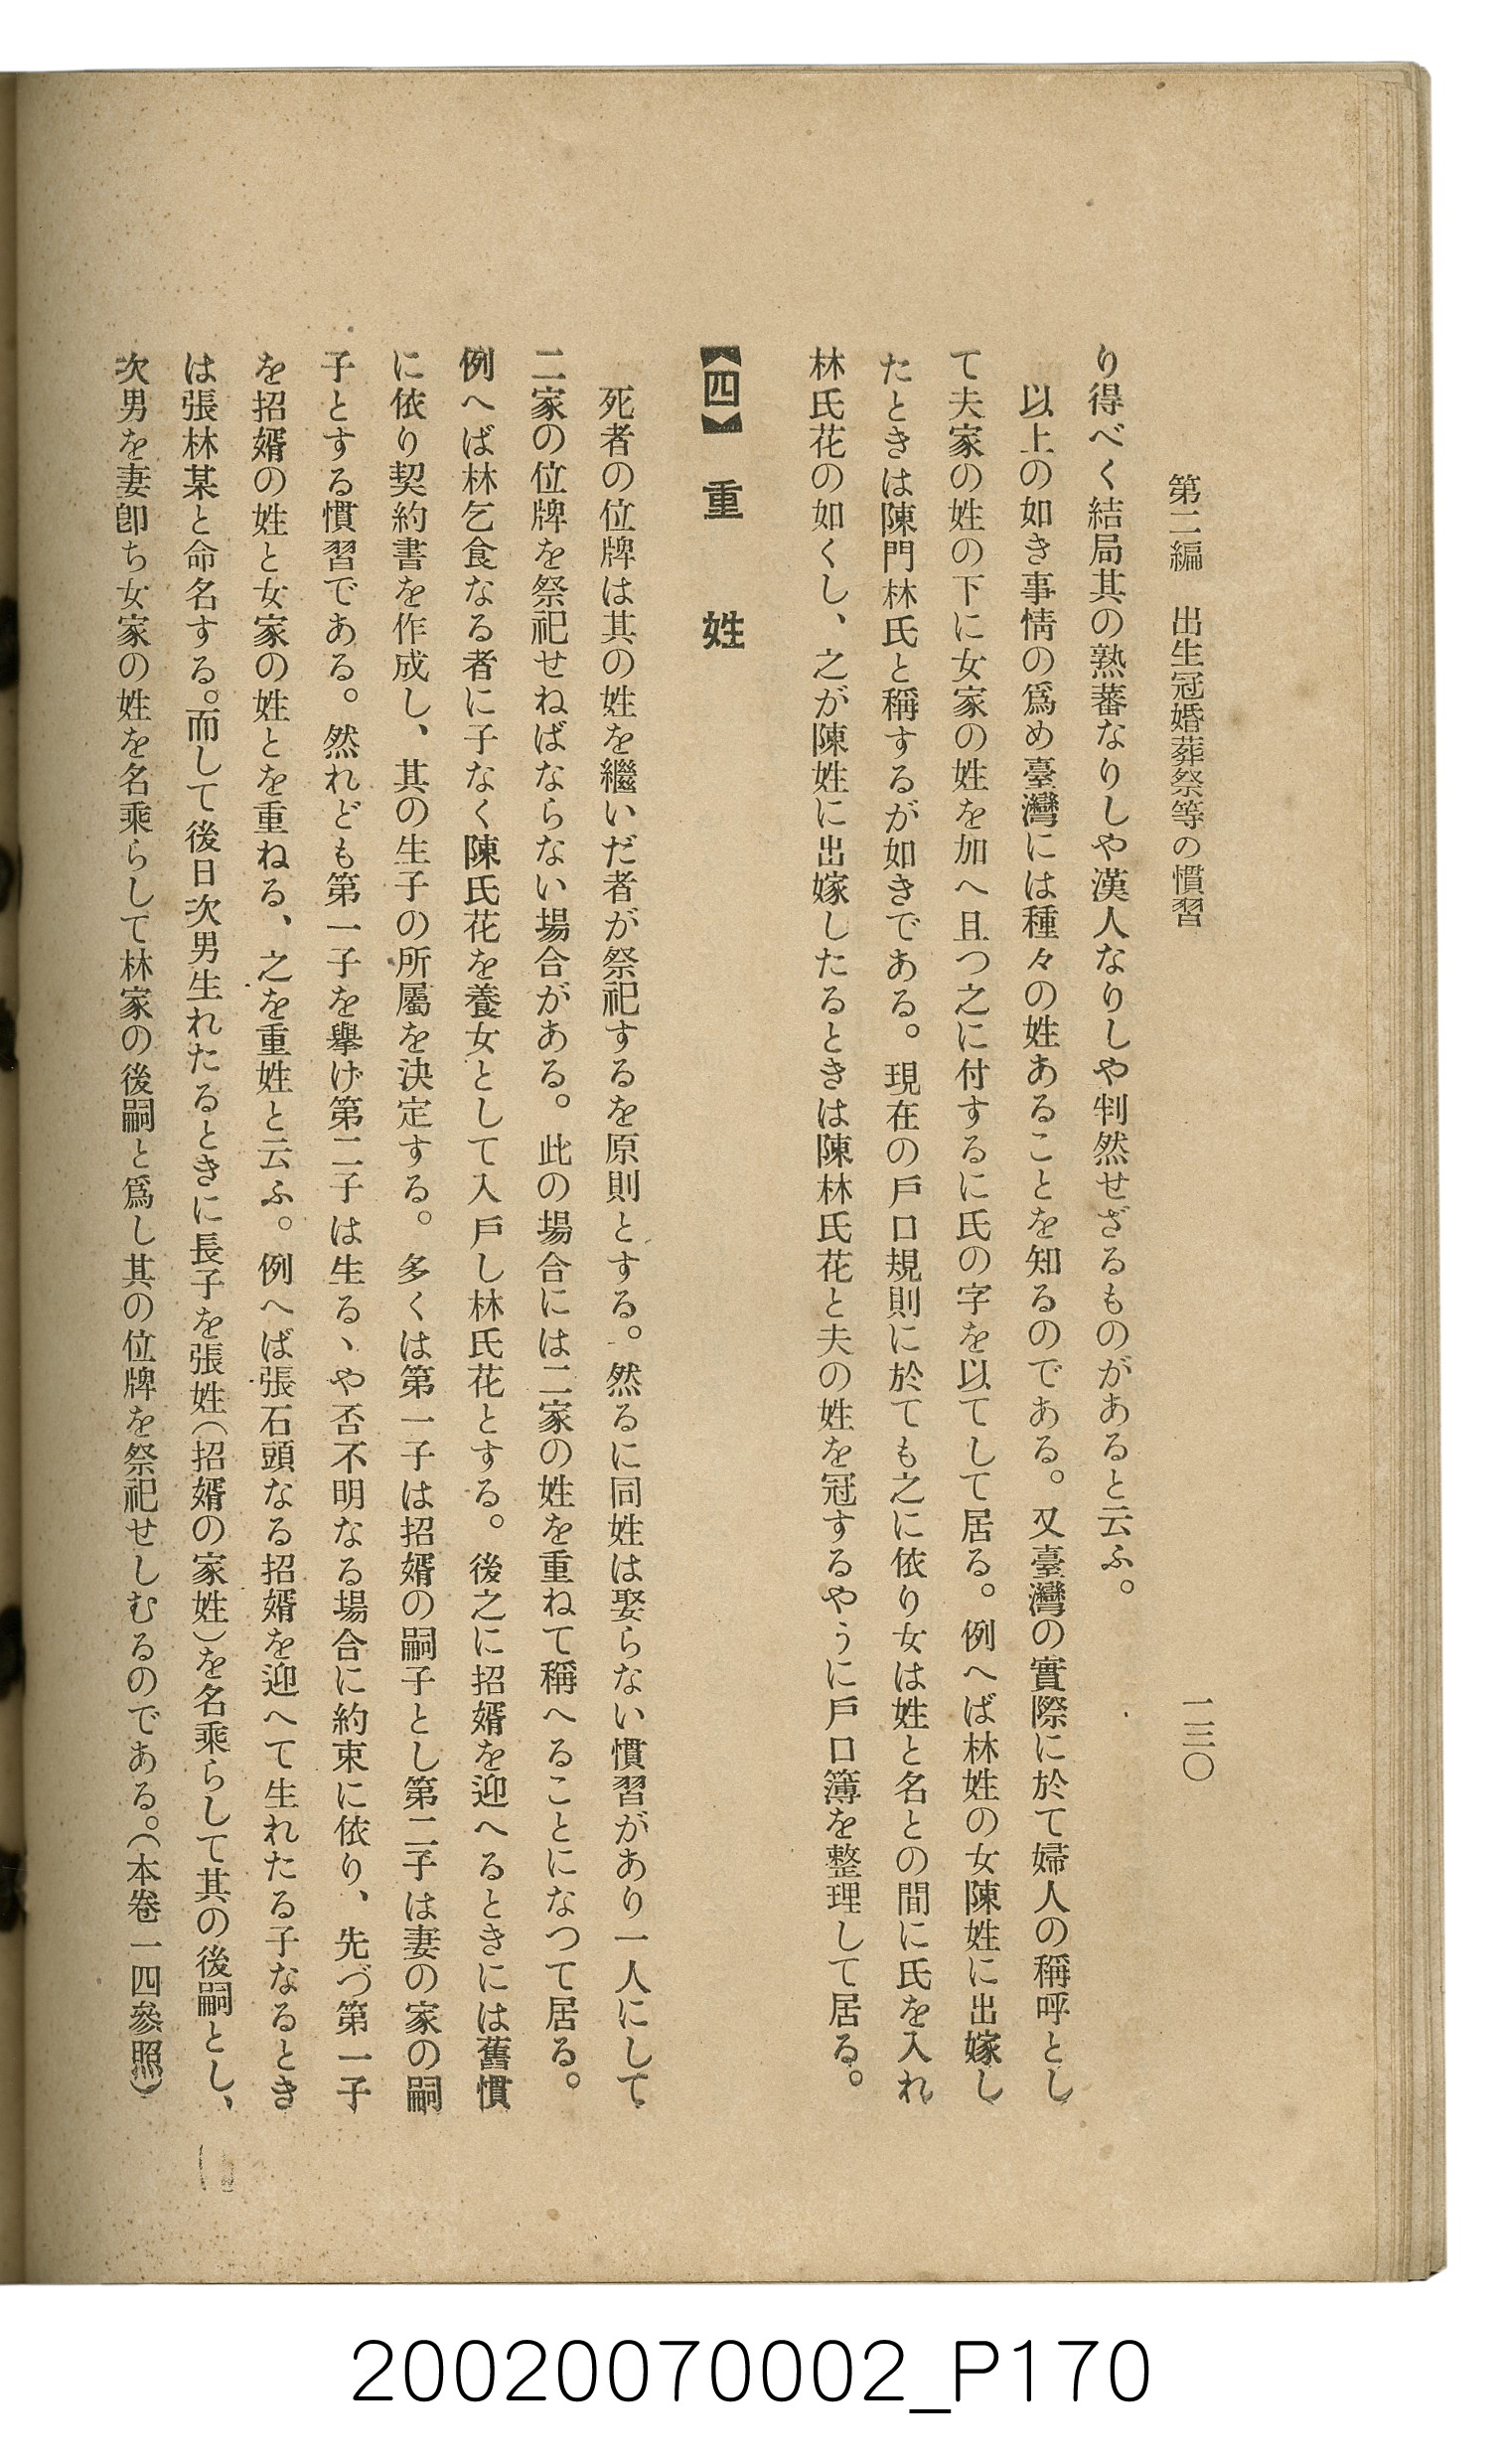 第二編　出生冠婚葬祭等の慣習
一三〇
り得べく結局其の熟蕃なりしや漢人なりしや判然せざるものがあると云ふ。
以上の如き事情の爲め臺灣には種々の姓あることを知るのである。又臺灣の實際に於て婦人の稱呼とし
て夫家の姓の下に女家の姓を加へ且つ之に付するに氏の字を以てして居る。例へば林姓の女陳姓に出嫁し
たときは陳門林氏と稱するが如きである。現在の戶口規則に於ても之に依り女は姓と名との間に氏を入れ
林氏花の如くし、之が陳姓に出嫁したるときは陳林氏花と夫の姓を冠するやうに戶口簿を整理して居る。
【四】　重　姓
死者の位牌は其の姓を繼いだ者が祭祀するを原則とする。然るに同姓は娶らない慣習があり一人にして
二家の位牌を祭祀せねばならない場合がある。此の場合には二家の姓を重ねて稱へることになつて居る。
例へば林乞食なる者に子なく陳氏花を養女として入戶し林氏花とする。後之に招婿を迎へるときには舊慣
に依り契約書を作成し、其の生子の所屬を決定する。多くは第一子は招婿の嗣子とし第二子は妻の家の嗣
子とする慣習である。然れども第一子を擧げ第二子は生るゝや否不明なる場合に約束に依り、先づ第一子
を招婿の姓と女家の姓とを重ねる、之を重姓と云ふ。例へば張石頭なる招婿を迎へて生れたる子なるとき
は張林某と命名する。而して後日次男生れたるときに長子を張姓（招婿の家姓）を名乘らして其の後嗣とし、
次男を妻卽ち女家の姓を名乘らして林家の後嗣と爲し其の位牌を祭祀せしむるのである。（本卷一四參照）
20020070002_P170